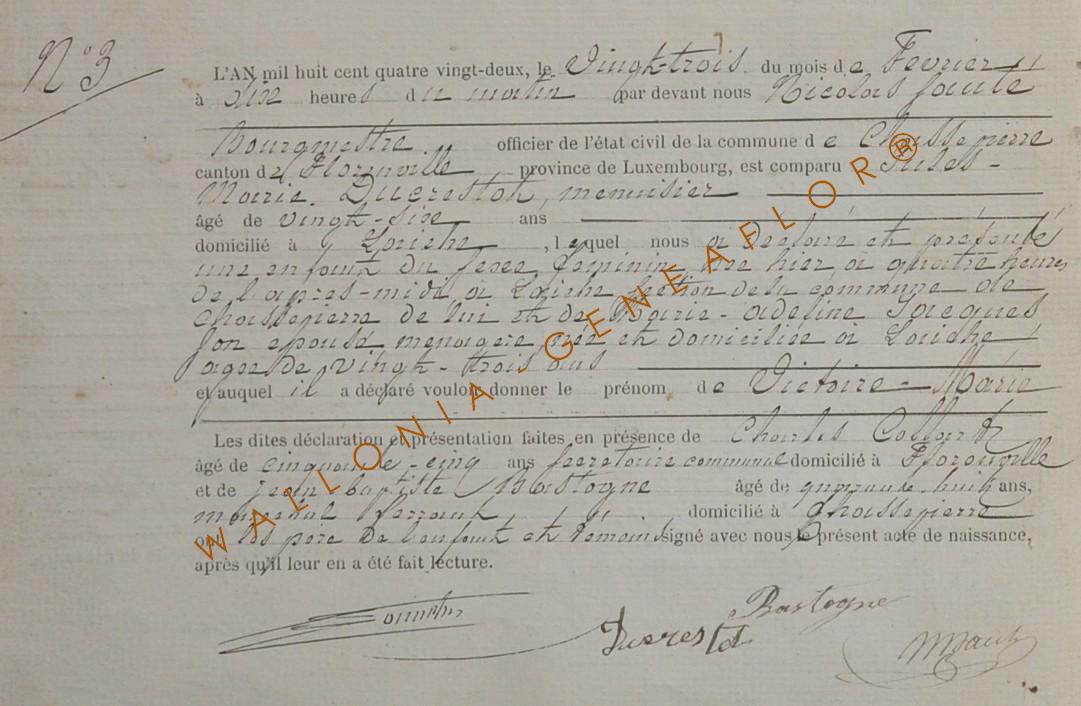 N° 3
L'AN mil huit cent quatre vingt-deux, le Vingt-trois du mois de Fevrier
à dix heures du matin par devant nous Nicolas
Bourgmestre officier de l'état civil de la commune de Chassepierre
canton de Florenville province de Luxembourg, est comparu Jules-
Marie Ducrestot, menuisier
âgé de vingt-six ans
domicilié à Laiche, lequel nous a declaré et présenté
une enfant du sexe feminin, née hier à quatre heures
de l'apres-midi à Laiche section de la commune de
Chassepierre de lui et de Marie-adeline Jacques
son epouse menagere, née et domiciliée à Laiche
agée de vingt-trois ans
et auquel il a déclaré vouloir donner le prénom de Victoire-Marie
Les dites déclaration et présentation faites en présence de Charles
âgé de cinquante-cinq ans secretaire communal domicilié à Florenville
et de jean baptiste Bastogne âgé de quarante-huit ans,
marechal ferrant domicilié à Chassepierre
ont les pere de l'enfant et témoins signé avec nous le présent acte de naissance,
après qu'il leur en a été fait lecture.
Bastogne
Ducrestot
WALLONIA GENEAFLOR®